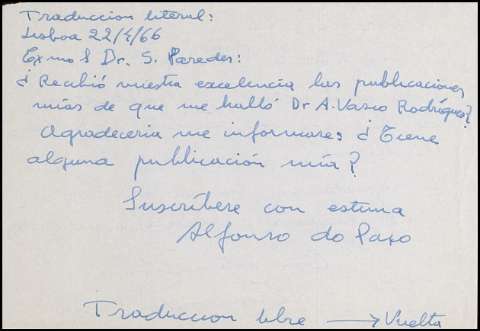 Traduccion literal:
Lisboa 22/4/66
Exmo S Dr. S. Paredes:
¿ Recibió vuestra excelencia las publicaciones
mias de que me halló Dr A. Vasco Rodrigues?
Agradeceria me informare: ¿ Tiene
alguna publicación mía?
Suscríbese con estima
Alfonso do Paço
Traduccion libre → Vuelta